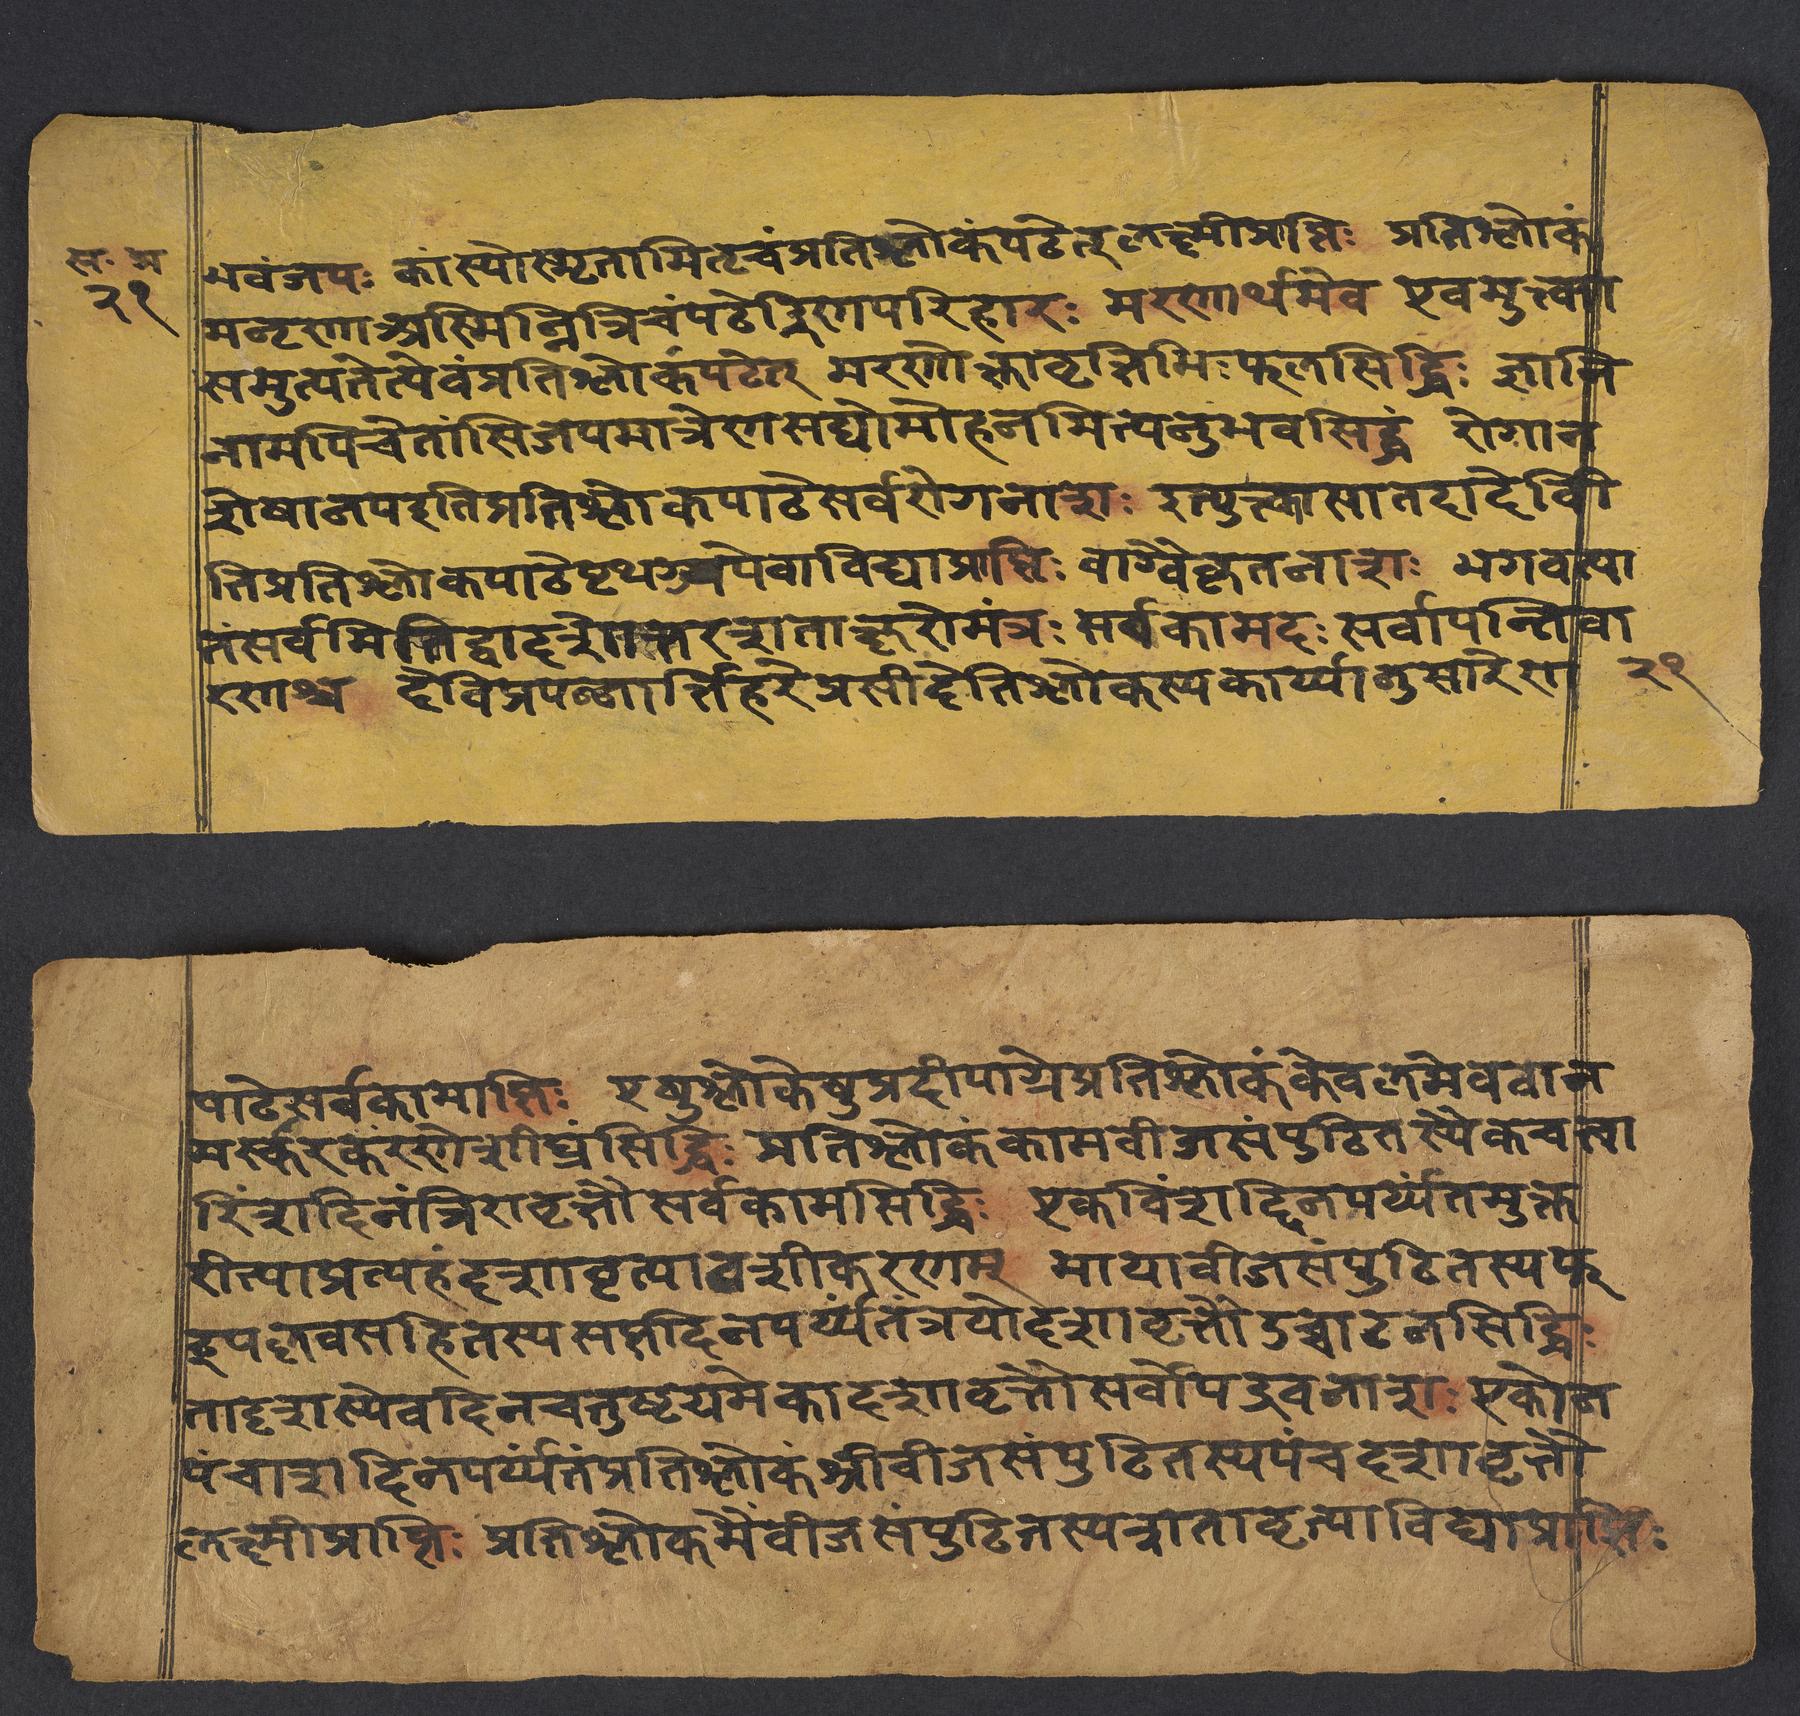 सः प्र
२१
भवं जपः कां स्योस्मृतामित्यृचं प्रतिश्लोकं पठेत् लक्ष्मीप्राप्तिः प्रतिश्लोकं
मनृणाअस्मिन्निन्निचं पठेदृणपरिहारः मरणार्थमेव एवमुक्त्वा
समुत्पतेत्येवं प्रतिश्लोकं पठेत् मरणोक्तावृत्तिभिः फलसिद्धिः ज्ञानि
नामपि चेतांसि जपमात्रेण सद्यो मोहनमित्यनुभवसिद्धं रोगान
शेषानपहृति प्रतिश्लोकपाठे सर्वरोगनाशः इत्युक्त्वा सा तदा देवी
ति प्रतिश्लोकपाठे पृथग्जपे वा विद्याप्राप्तिः वाग्वैकृतनाशः भगवत्या
तं सर्वमिति द्वादशोत्तरशताक्षरो मंत्रः सर्वकामदः सर्वापन्निवा
रणश्च देवि प्रपन्नार्त्तिहरे प्रसीदेति श्लोकस्य कार्य्यानुसारेण
२१
पाठे सर्वकामाप्तिः एषु श्लोकेषु प्रदीपाग्रे प्रतिश्लोकं केवलमेव वा न
मस्करकरणे शीघ्रं सिद्धिः प्रतिश्लोकं कामबीजसंपुटितस्यैकचत्वा
रिंशद्दिनं त्रिरावृत्तौ सर्वकामसिद्धिः एकविंशद्दिनपर्य्यंतमुक्त
रीत्या प्रत्यहं दशावृत्या वशीकरणम् मायाबीजसंपुटितस्य फ
ट्पल्लवसहितस्य सप्तदिनपर्य्यंतं त्रयोदशावृत्तौ उच्चाटनसिद्धिः
तादृशस्यैव दिनचतुष्टयमेकादशावृत्तौ सर्वोपद्रवनाशः एकोन
पंचाशद्दिनपर्य्यंतं प्रतिश्लोकं श्रीबीजसंपुटितस्य पंचदशावृत्तौ
लक्ष्मीप्राप्तिः प्रतिश्लोकमैंबीजसंपुटितस्य शतावृत्या विद्याप्राप्तिः